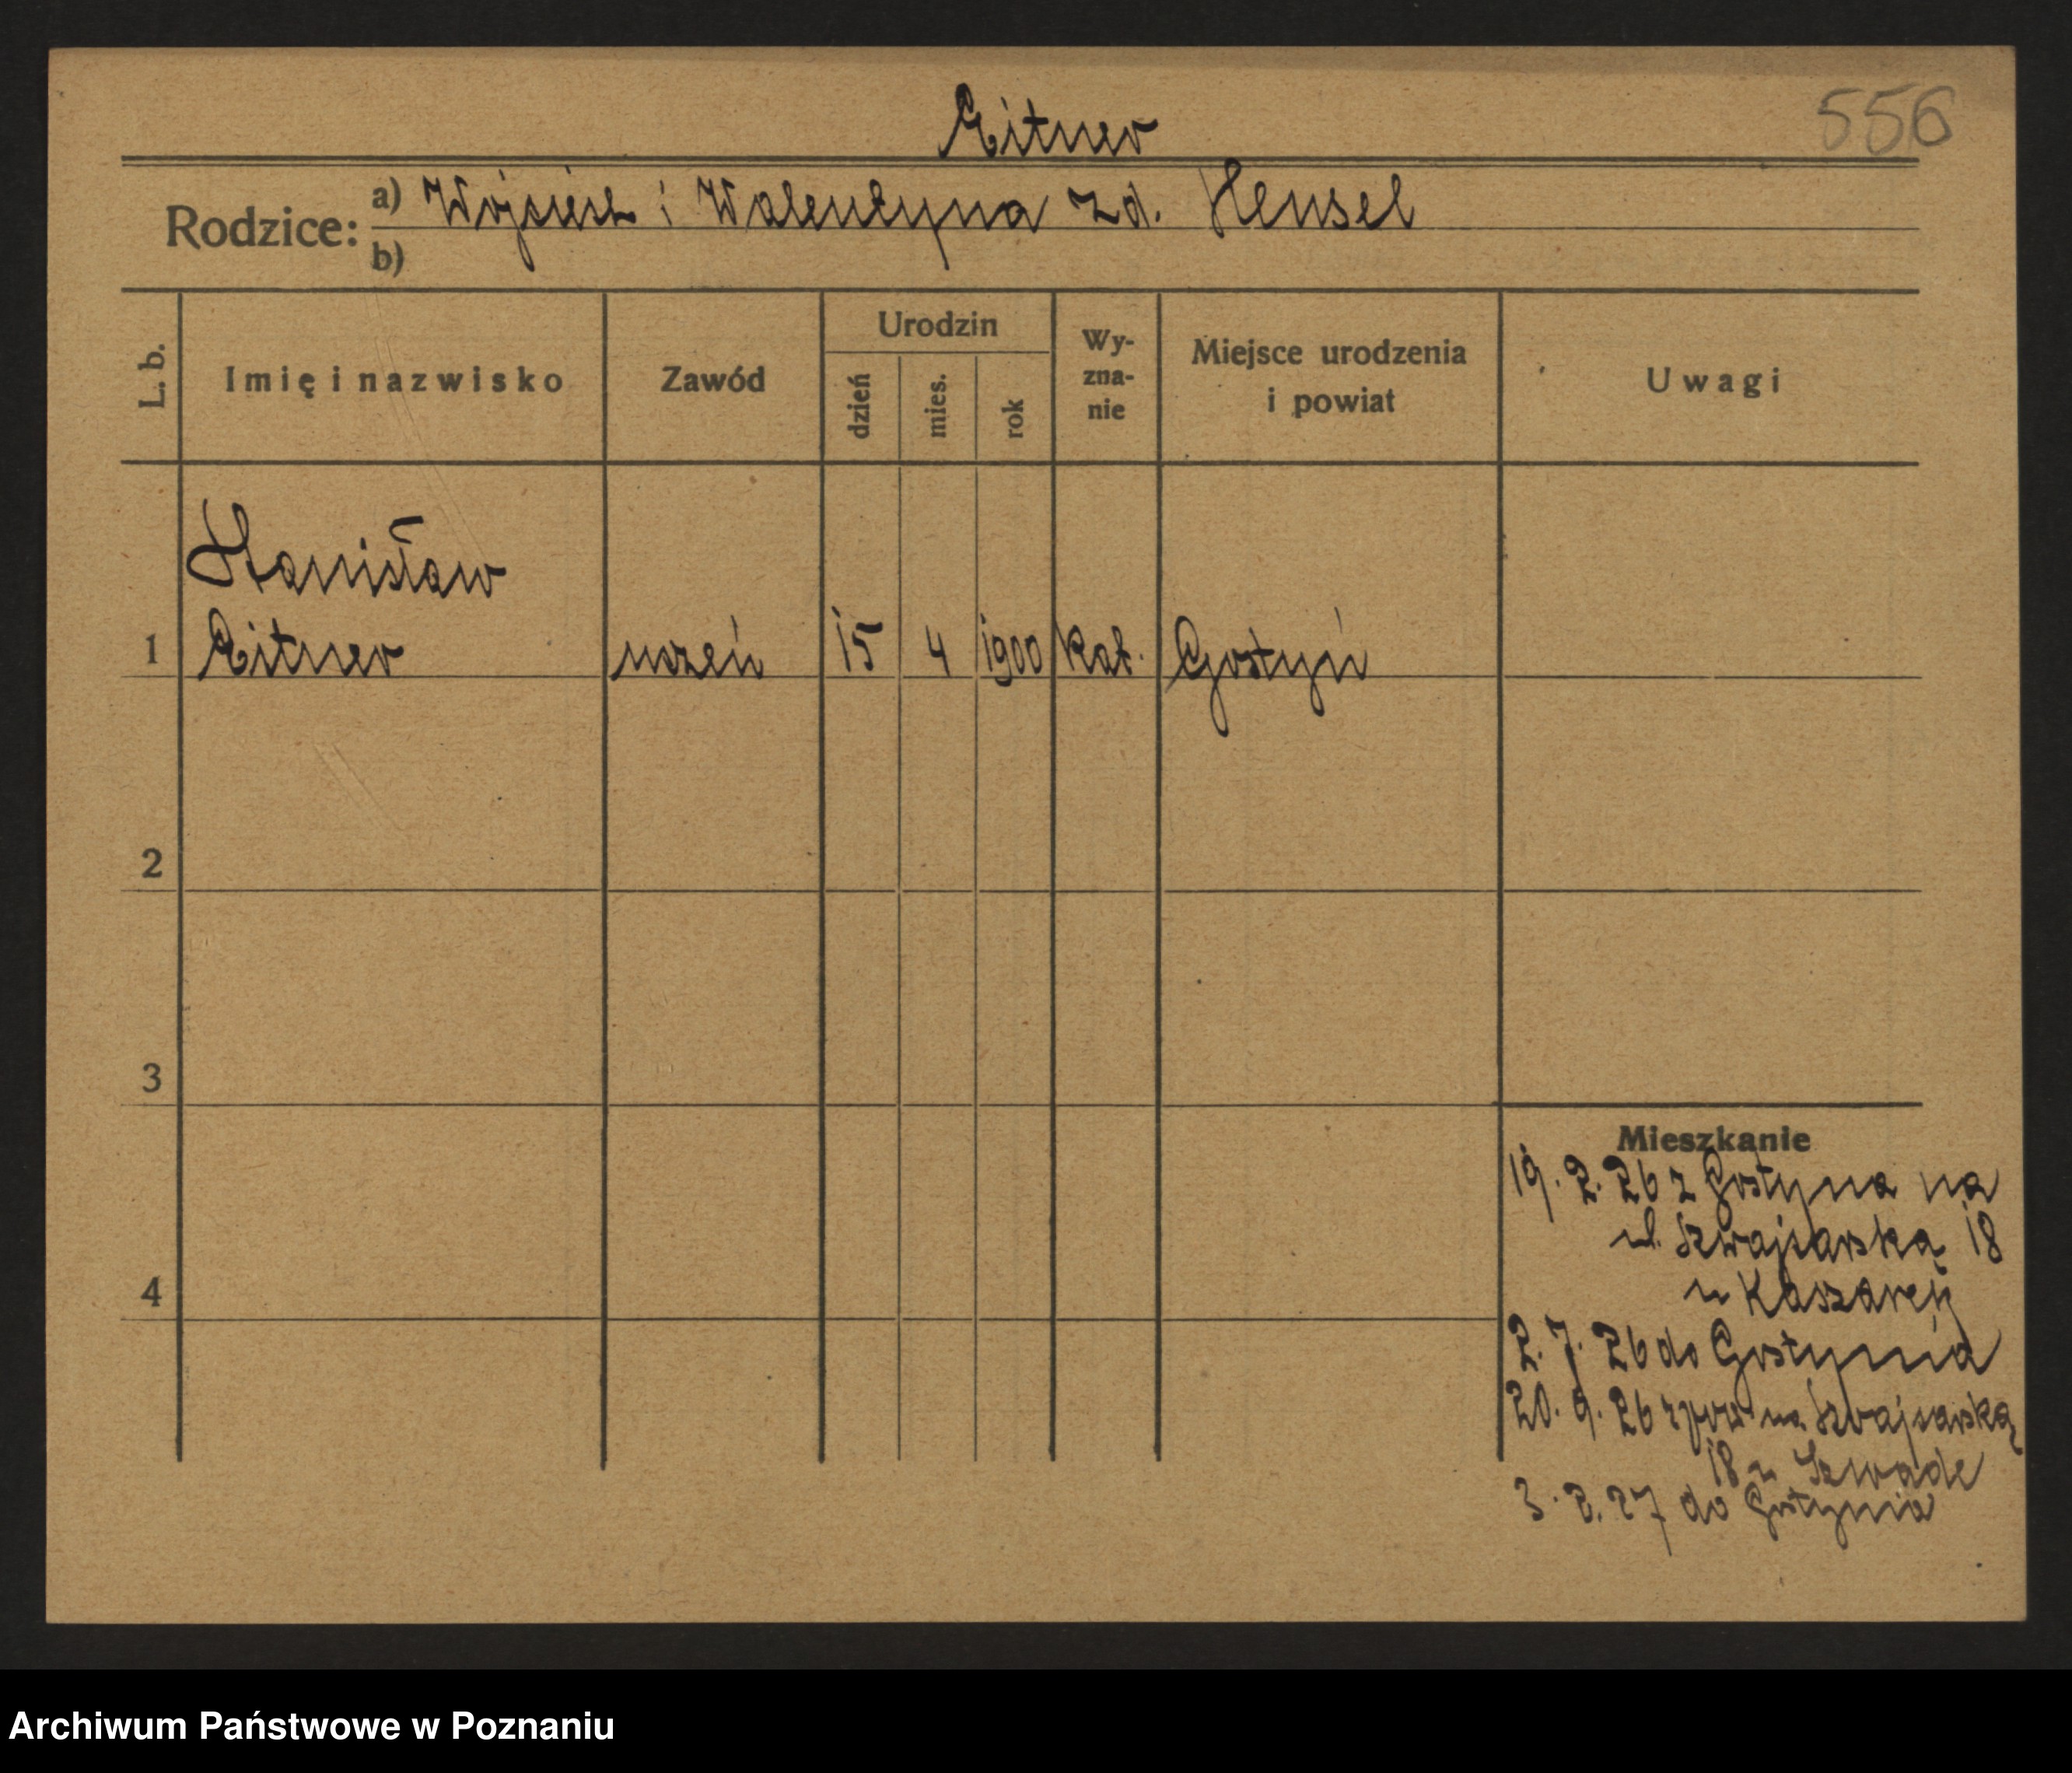 Eitner
556
Rodzice: a) Wojciech i Walentyna zd. Hensel
b)
L. b. Imię i nazwisko Zawód Urodzin dzień mies. rok Wy-zna-nie Miejsce urodzenia i powiat Uwagi
Stanisław
1 Eitner uczeń 15 4 1900 kat. Gostyń
2
3
Mieszkanie
19. 2. 26 z Gostynia na
ul. Szwajcarską 18
u Kaszarek
4
2. 7. 26 do Gostynia
20. 9. 26 zpow na Szwajcarską
18 u Szwade
3. 2. 27 do Gostynia
Archiwum Państwowe w Poznaniu